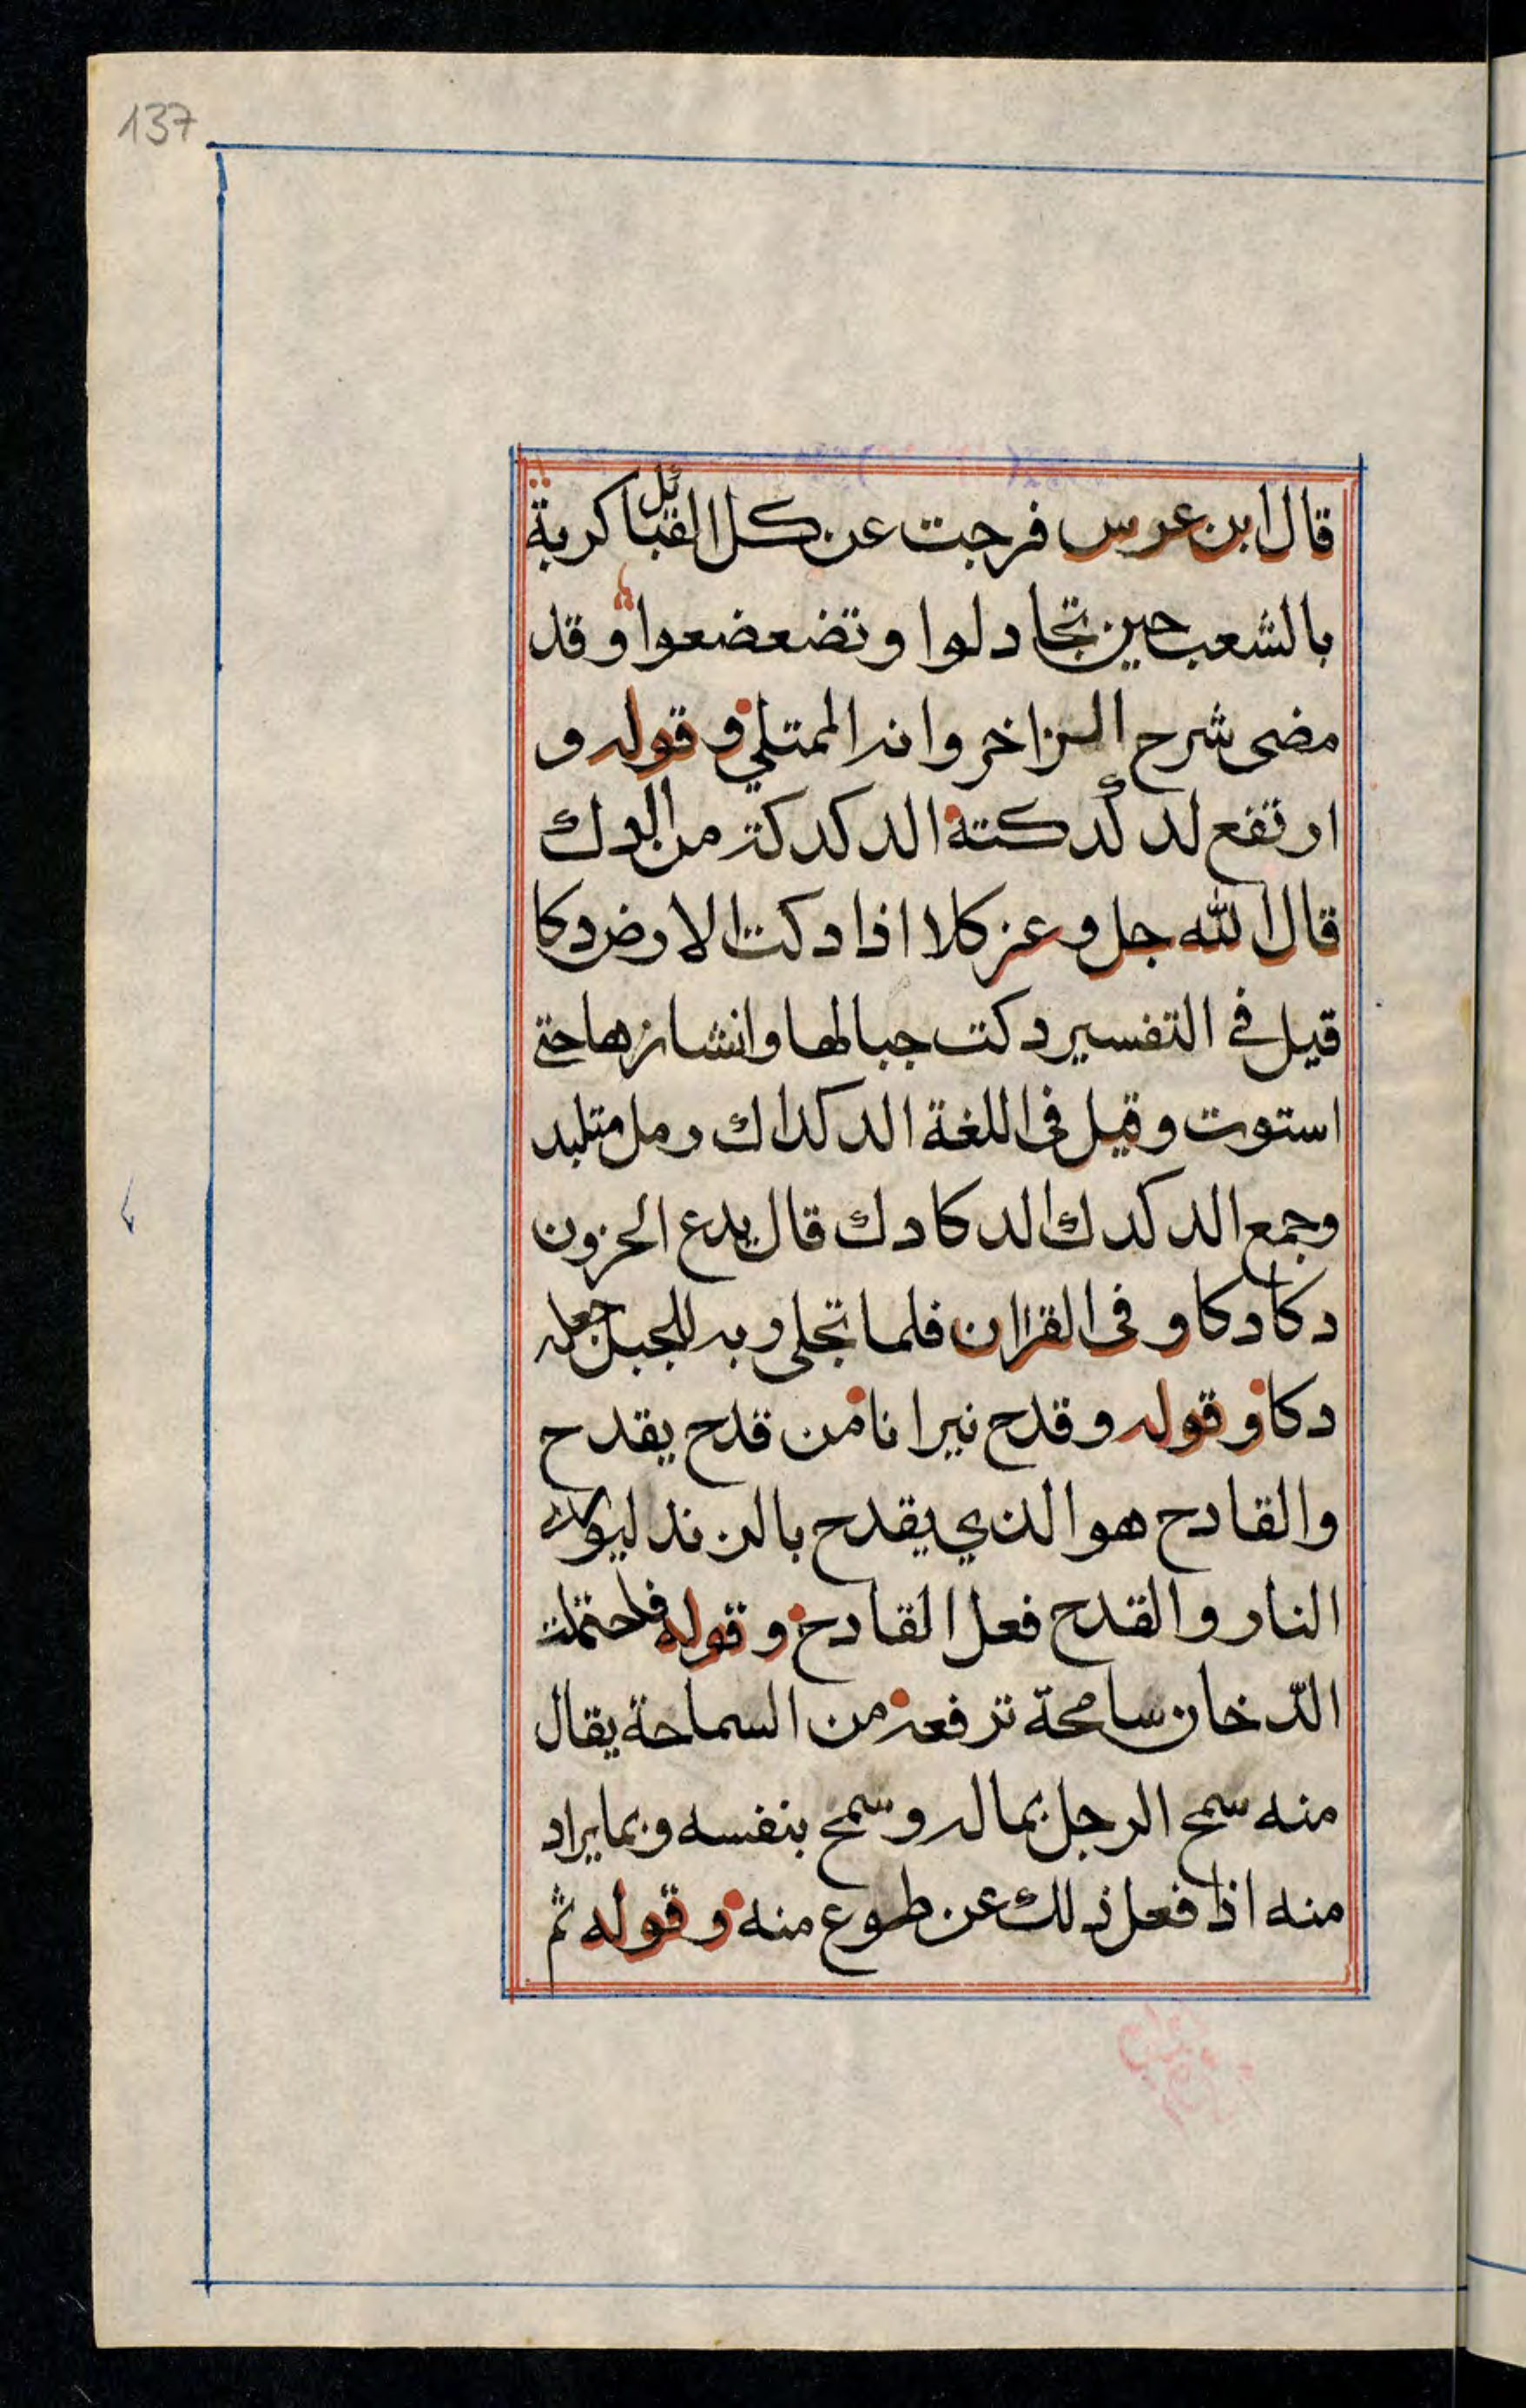 137
قال ابن عرس فرجت عن كل القبائل كربة
بالشعب حين تجادلوا وتضعضعوا وقد
مضى شرح الزاخر وانه الممتلي وقوله و
ارتفع لدكدكته الدكدكة من الدك
قال الله جل وعز كلا اذا دكت الارض دكا
قيل في التفسير دكت جبالها وانشازها حتى
استوت وقيل في اللغة الدكداك رمل متلبد
وجمع الدكدك الدكادك قال يدع الحزون
دكادكا وفي القران فلما تجلى ربه للجبل جعله
دكا وقوله وقدح نيرانا من قدح يقدح
والقادح هو الذي يقدح بالزند
النار والقدح فعل القادح وقوله فاحتملت
الدّخان سامحة ترفعه من السماحة يقال
منه سمح الرجل بماله وسمح بنفسه وبما يراد
منه اذا فعل ذلك عن طوع منه وقوله ثم